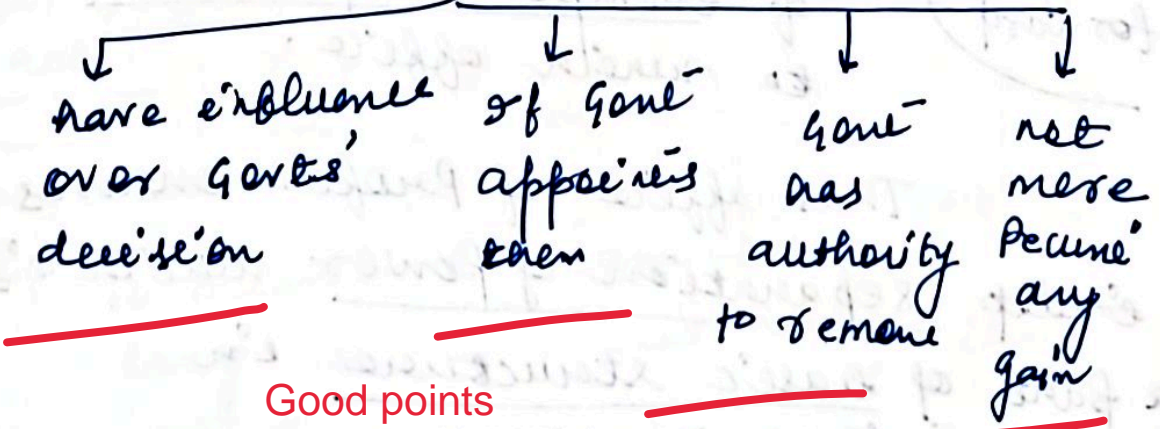 have influence
over Govts'
decision
if Govt
appoints
them
Govt
has
authority
to remove
not
mere
Pecuni
ary
gain
Good points